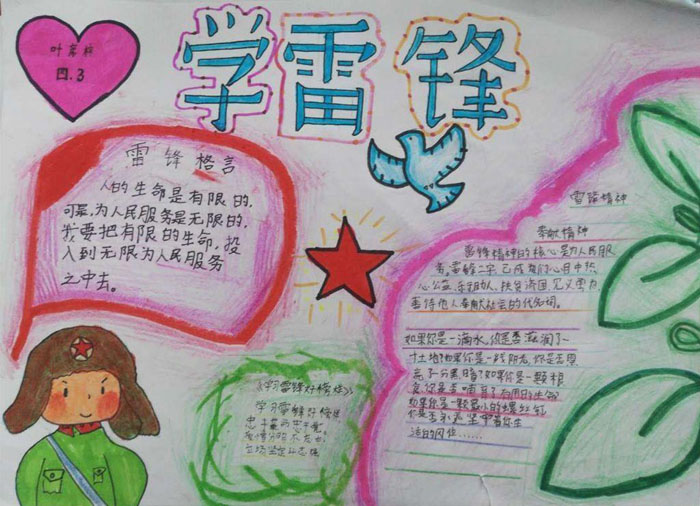 学雷锋
叶
四.3
雷锋格言
人的生命是有限的,
可是,为人民服务是无限的,
我要把有限的生命,投
入到无限为人民服务
之中去。
《学习雷锋好榜样》
学习雷锋好榜样
忠于革命忠于党
爱憎分明不忘本
立场坚定
雷锋精神
奉献精神
雷锋精神的核心是为人民服
务,雷锋二字,已成为人们心目中热
心公益、乐于助人、扶贫济困、见义勇为
善待他人奉献社会的代名词。
如果你是一滴水,你是否滋润了一
寸土地?如果你是一线阳光,你是否照
亮了一分黑暗?如果你是一颗粮
食,你是否哺育了有用的生命?
如果你是一颗最小的螺丝钉
你是否永远坚守着你生
活的岗位……